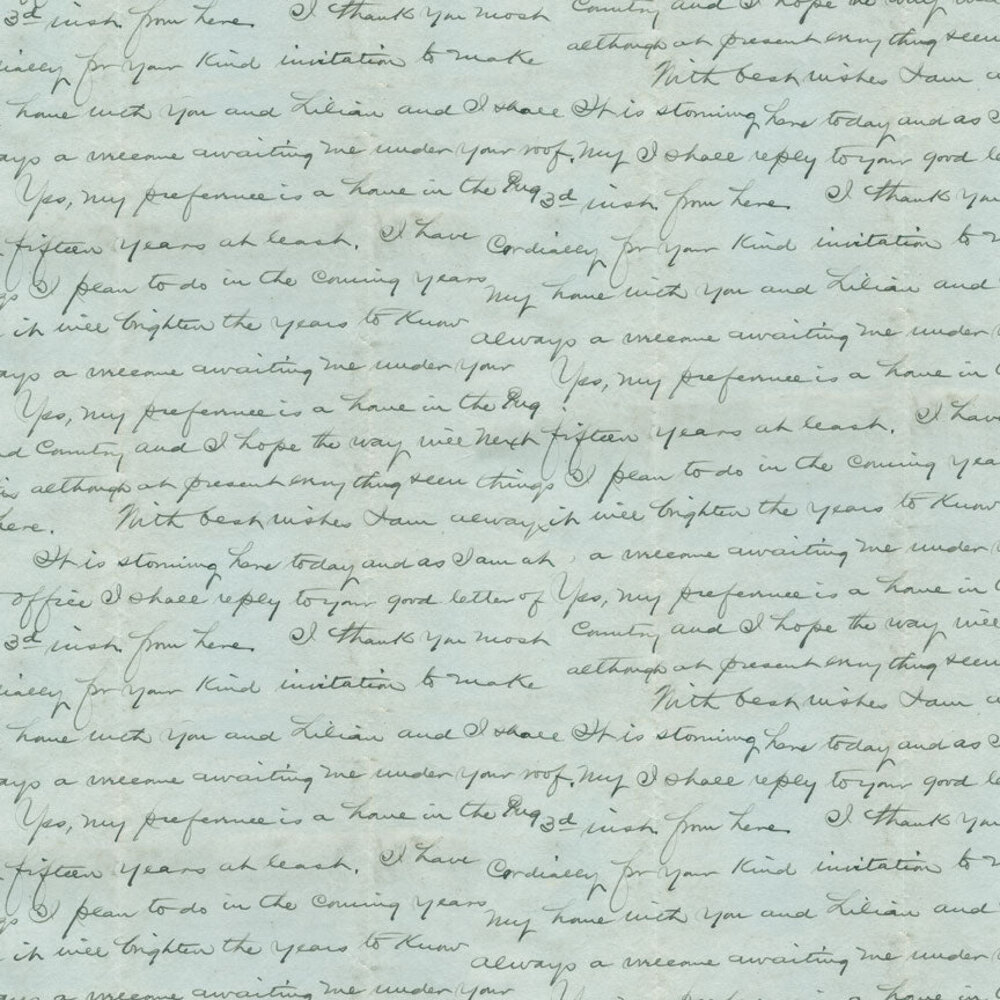 3d inst. from here. I thank you most Country and I hope the way will
although at present every thing seem
ially for your kind invitation to make
With best wishes I am a
home with you and Lilian and I shall It is storming here today and as I
ays a welcome awaiting me under your roof. My I shall reply to your good le
Yes, my preference is a home in the Pug 3d inst. from here. I thank you
fifteen years at least. I have Cordially for your kind invitation to m
gs I plan to do in the coming years My home with you and Lilian and
it will brighten the years to know always a welcome awaiting me under
ays a welcome awaiting me under your Yes, my preference is a home in
Yes, my preference is a home in the Pug
d Country and I hope the way will next fifteen years at least. I have
is although at present every thing seem things I plan to do in the coming yea
here. With best wishes I am always it will brighten the years to know
It is storming here today and as I am at a welcome awaiting me under
office I shall reply to your good letter of Yes, my preference is a home in
3d inst. from here. I thank you most Country and I hope the way will
although at present every thing seem
ially for your kind invitation to make
With best wishes I am a
home with you and Lilian and I shall It is storming here today and as I
ays a welcome awaiting me under your roof. My I shall reply to your good le
Yes, my preference is a home in the Pug 3d inst. from here. I thank you
fifteen years at least. I have Cordially for your kind invitation to m
gs I plan to do in the coming years My home with you and Lilian and
it will brighten the years to know always a welcome awaiting me under
ays a welcome awaiting me under your Yes, my preference is a home in